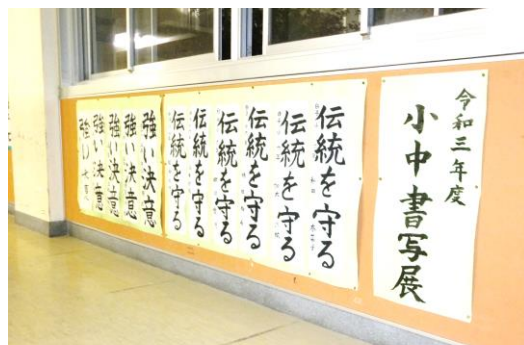 令和三年度
小中書写展
伝統を守る
伝統を守る
伝統を守る
伝統を守る
伝統を守る
伝統を守る
強い決意
強い決意
強い決意
強い決意
強い